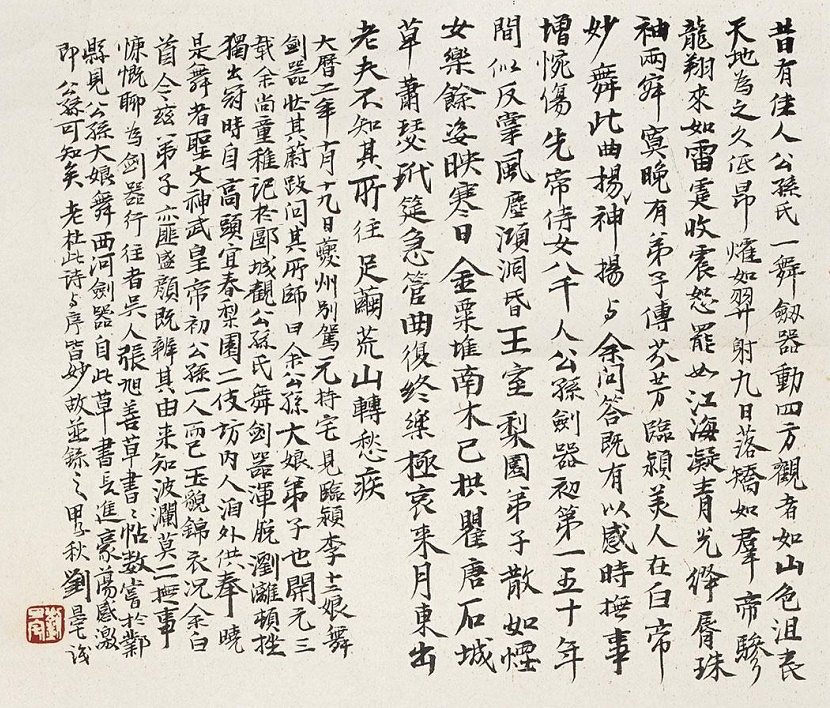 昔有佳人公孫氏一舞劔器動四方觀者如山色沮喪
天地為之久低昂㸌如羿射九日落矯如羣帝驂
龍翔來如雷霆收震怒罷如江海凝青光絳脣珠
袖兩寂寞晚有弟子傳芬芳臨潁美人在白帝
妙舞此曲揚神揚与余問答既有以感時撫事
增惋傷先帝侍女八千人公孫劍器初第一五十年
間似反掌風塵澒洞昏王室梨園弟子散如煙
女樂餘姿映寒日金粟堆南木已拱瞿唐石城
草蕭瑟玳筵急管曲復終樂極哀來月東出
老夫不知其所往足繭荒山轉愁疾
大曆二年十月十九日夔州別駕元持宅見臨潁李十二娘舞
劍器壯其蔚跂問其所師曰余公孫大娘弟子也開元三
載余尚童稚記於郾城觀公孫氏舞劍器渾脫瀏灕頓挫
獨出冠時自高頭宜春梨園二伎坊內人洎外供奉曉
是舞者聖文神武皇帝初公孫一人而已玉貌錦衣況余白
首今茲弟子亦匪盛顏既辨其由來知波瀾莫二撫事
慷慨聊為劍器行往者吳人張旭善草書〻帖數嘗於鄴
縣見公孫大娘舞西河劍器自此草書長進豪蕩感激
即公孫可知矣 老杜此詩与序皆妙故並錄之 甲子秋 劉